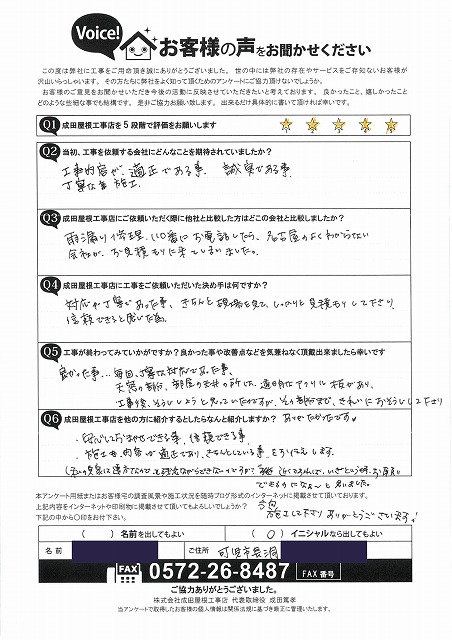 Voice!
お客様の声をお聞かせください
この度は弊社に工事をご用命頂き誠にありがとうございました。世の中には弊社の存在やサービスをご存知ないお客様が
沢山いらっしゃいます。その方たちに弊社をよく知って頂くためのアンケートにご協力頂けないでしょうか。
お客様のご意見をお聞かせいただき今後の活動に反映させていただきたいと考えております。良かったこと、嬉しかったこと
どのような些細な事でも結構です。是非ご協力お願い致します。出来るだけ具体的に書いて頂ければ幸いです。
Q1 成田屋根工事店を5段階で評価をお願いします ☆ ☆ ☆ ☆ ☆
Q2 当初、工事を依頼する会社にどんなことを期待されていましたか?
工事内容が、適正である事、誠実である事
丁寧な施工
Q3 成田屋根工事店にご依頼いただく際に他社と比較した方はどこの会社と比較しましたか?
雨漏り修理110番にお電話したら、名古屋のよくわからない
会社が、お見積もりに来てしまいました。
Q4 成田屋根工事店にご依頼いただいた決め手は何ですか?
対応が丁寧であった事、きちんと現場を見て、しっかりと見積もりして下さり
信頼できると感じた為。
Q5 工事が終わってみていかがですか?良かった事や改善点などを気兼ねなく頂戴出来ましたら幸いです
良かった事…毎回、丁寧な対応であった事、
Q6 成田屋根工事店を他の方に紹介するとしたらなんと紹介しますか?
ありがたかったです
・安心しておまかせできる事、信頼できる事、
・施工も内容が適正であり、きちんとしている事をお伝えします。
本アンケート用紙またはお客様宅の調査風景や施工状況を随時ブログ形式のインターネットに掲載させて頂いております。
上記内容をインターネットや印刷物に掲載させて頂いてもよろしいでしょうか?
下記の中から〇印をお付下さい。
施工して下さりありがとうございます
( )名前を出してもよい
(○)イニシャルなら出してもよい
名前
ご住所
可児市長洞
FAX 0572-26-8487 FAX番号
ご協力ありがとうございました。
株式会社成田屋根工事店 代表取締役 成田篤孝
当アンケートで取得したお客様の個人情報は関係法規に基づき厳正に管理いたします。